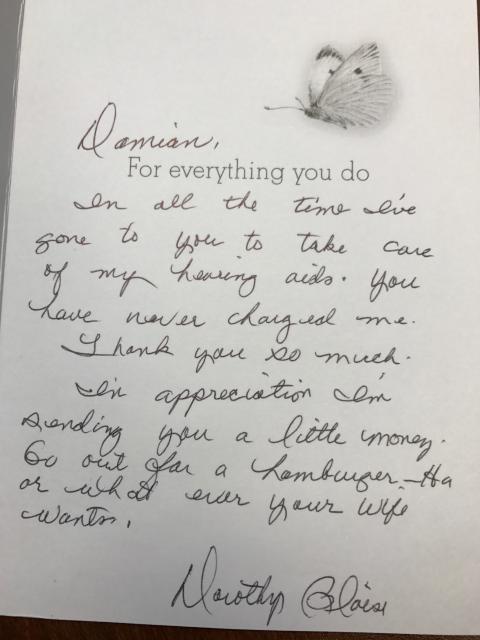 Damian,
For everything you do
In all the time I've
gone to you to take care
of my hearing aids. You
have never charged me.
Thank you so much.
In appreciation I'm
sending you a little money.
Go out for a hamburger - Ha
or what ever your wife
wants.
Dorothy